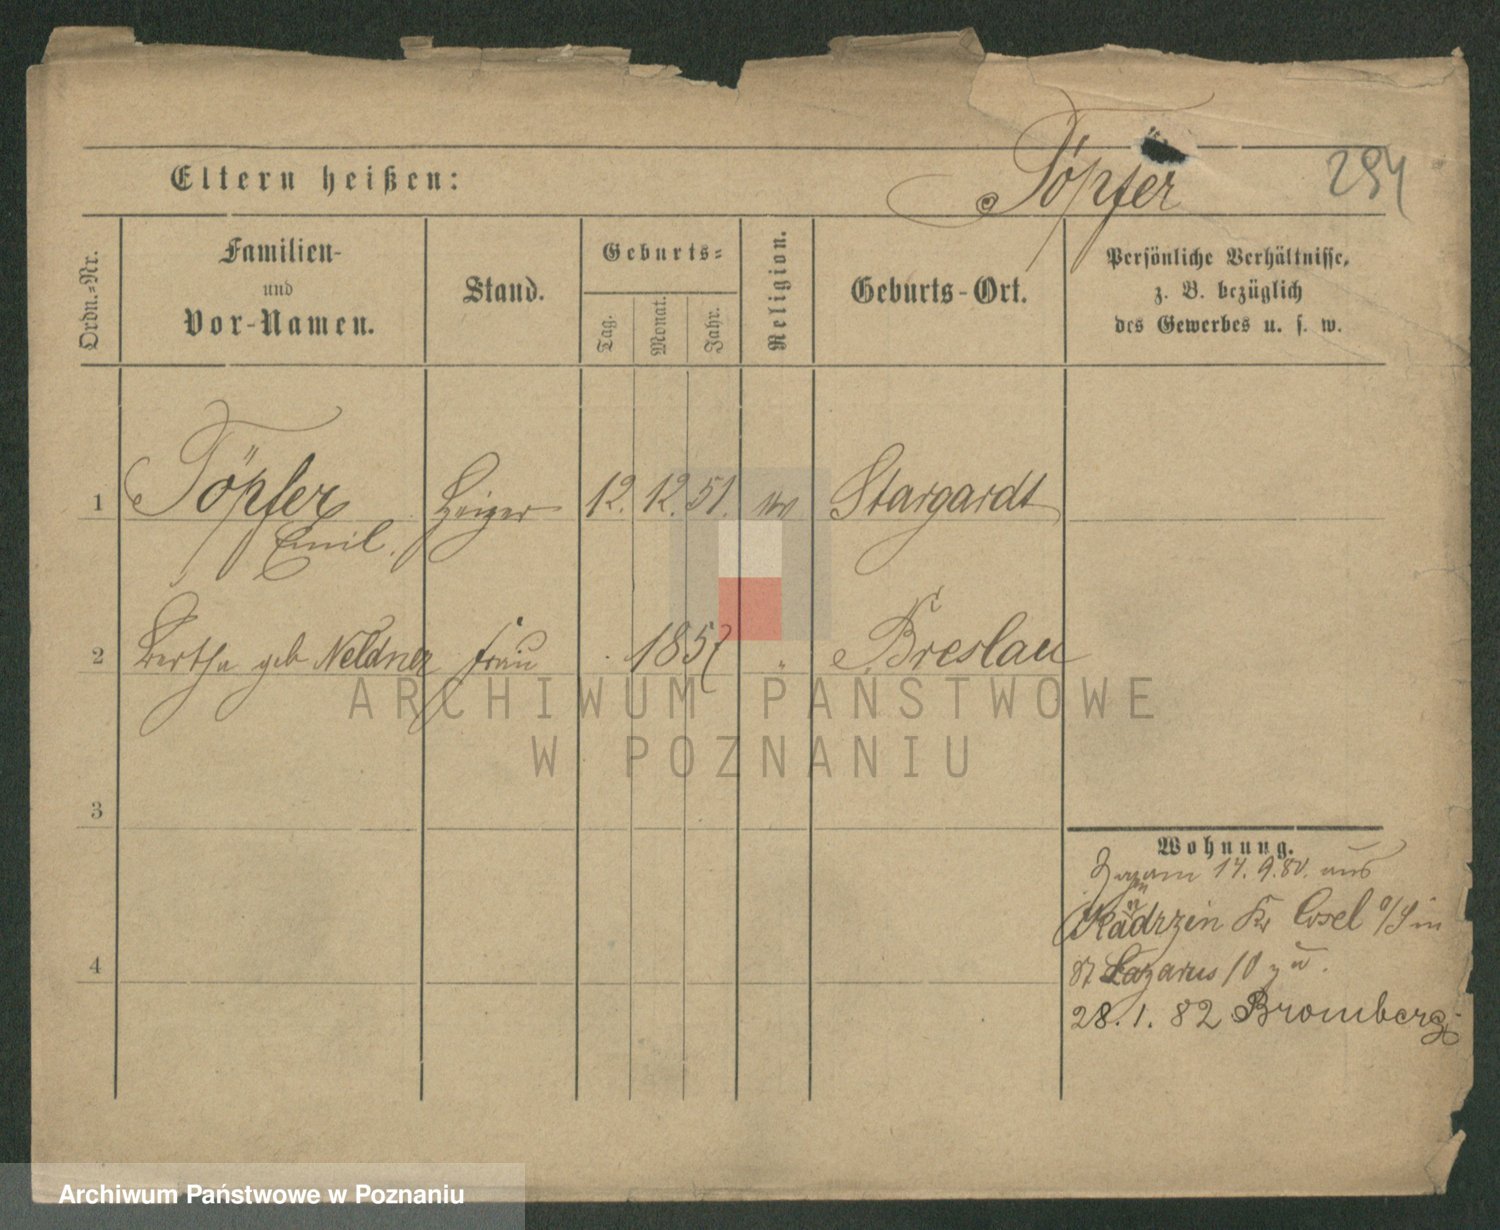 Töpfer 294
Eltern heißen:
Ordn.-Nr.
Familien-
und
Vor-Namen.
Stand.
Geburts-
Tag.
Monat.
Jahr.
Religion.
Geburts-Ort.
Persönliche Verhältnisse,
z. B. bezüglich
des Gewerbes u. s. w.
1 Töpfer Heizer 12. 12. 51. Stargardt
Emil.
2 Bertha geb Neldner Frau 1857 " Breslau
3
4
Wohnung.
am 17. 9. 80. aus
Kadrzin Kr Cosel o/S in
St Lazarus 10
28. 1. 82 Bromberg
ARCHIWUM PAŃSTWOWE
W POZNANIU
Archiwum Państwowe w Poznaniu